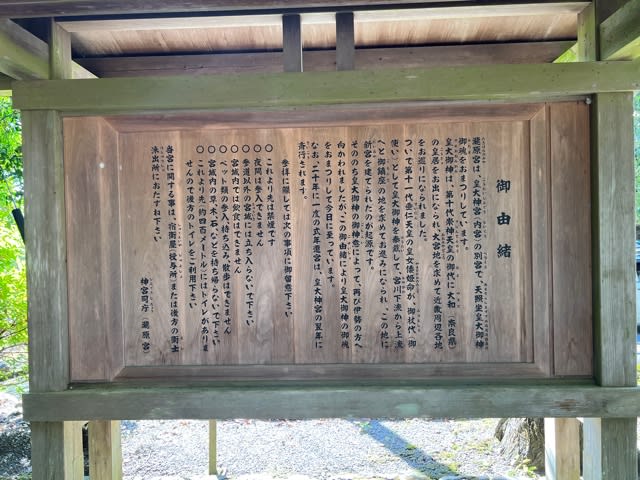 御由緒
瀧原宮は、皇大神宮(内宮)の別宮で、天照坐皇大御神
御魂をおまつりしています。
皇大御神は、第十代崇神天皇の御代に大和(奈良県)
の皇居をお出になられ、大宮地を求めて近畿周辺各地
をお巡りになられました。
ついで第十一代垂仁天皇の皇女倭姫命が、御杖代(御
使い)として皇大御神を奉戴して、宮川下流から上流
へと御鎮座の地を求めてお進みになられ、この地に
新宮を建てられたのが起源です。
そののち皇大御神の御神意によって、再び伊勢の方へ
向かわれましたが、この御由緒により皇大御神の御魂
をおまつりして今日に至っています。
なお、二十年に一度の式年遷宮は、皇大神宮の翌年に
斎行されます。
参拝に際しては次の事項に御留意下さい
○これより先は禁煙です
○夜間は参入できません
○参道以外の宮域には立ち入らないで下さい
○ペット類の参入、持ち込み、散歩はできません
○宮域内では飲食はできません
○宮域内の草、木、石などを持ち帰らないで下さい
○これより先(約四百メートル)にはトイレがありま
せんので後方のトイレをご利用下さい
当宮に関する事は、宿衛屋(授与所)または後方の衛士
派出所におたずね下さい
神宮司庁(瀧原宮)